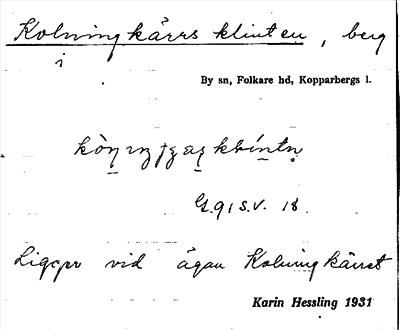 Kolningkärrs klinten, berg
i
By sn, Folkare hd, Kopparbergs l.
G.91 S.V. 18.
Ligger vid ägan Kolningkärret
Karin Hessling 1931